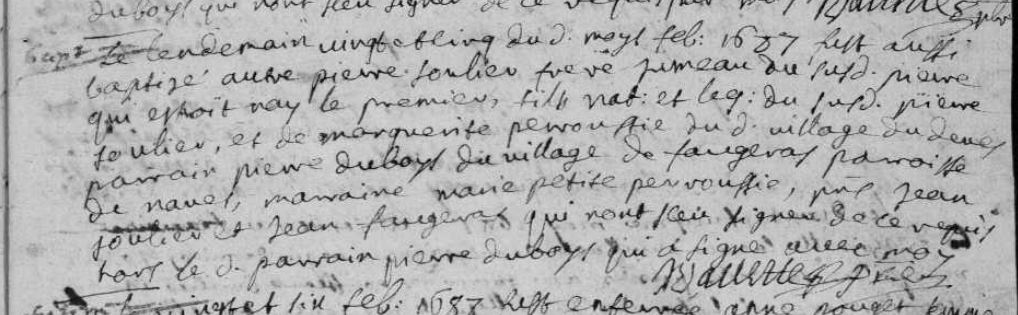 duboys qui nont sceu signer de ce requis par moy
bapt Le lendemain vingt et cinq du d. moys feb: 1687 fust aussi
baptizé autre pierre soulier frere jumeau du susd. pierre
qui estoit nay le premier, fils nat: et leg: du susd. pierre
soulier, et de marguerite perroussie du d. village du
parrain pierre duboys du village de faugeras parroisse
de naves, marraine marie petite perroussie, pns jean
soulier et jean faugeras qui nont sceu signer de ce requis
hors le d. parrain pierre duboys qui a signé avec moy
vingt et six feb: 1687 fust enterrée anne pouget femme